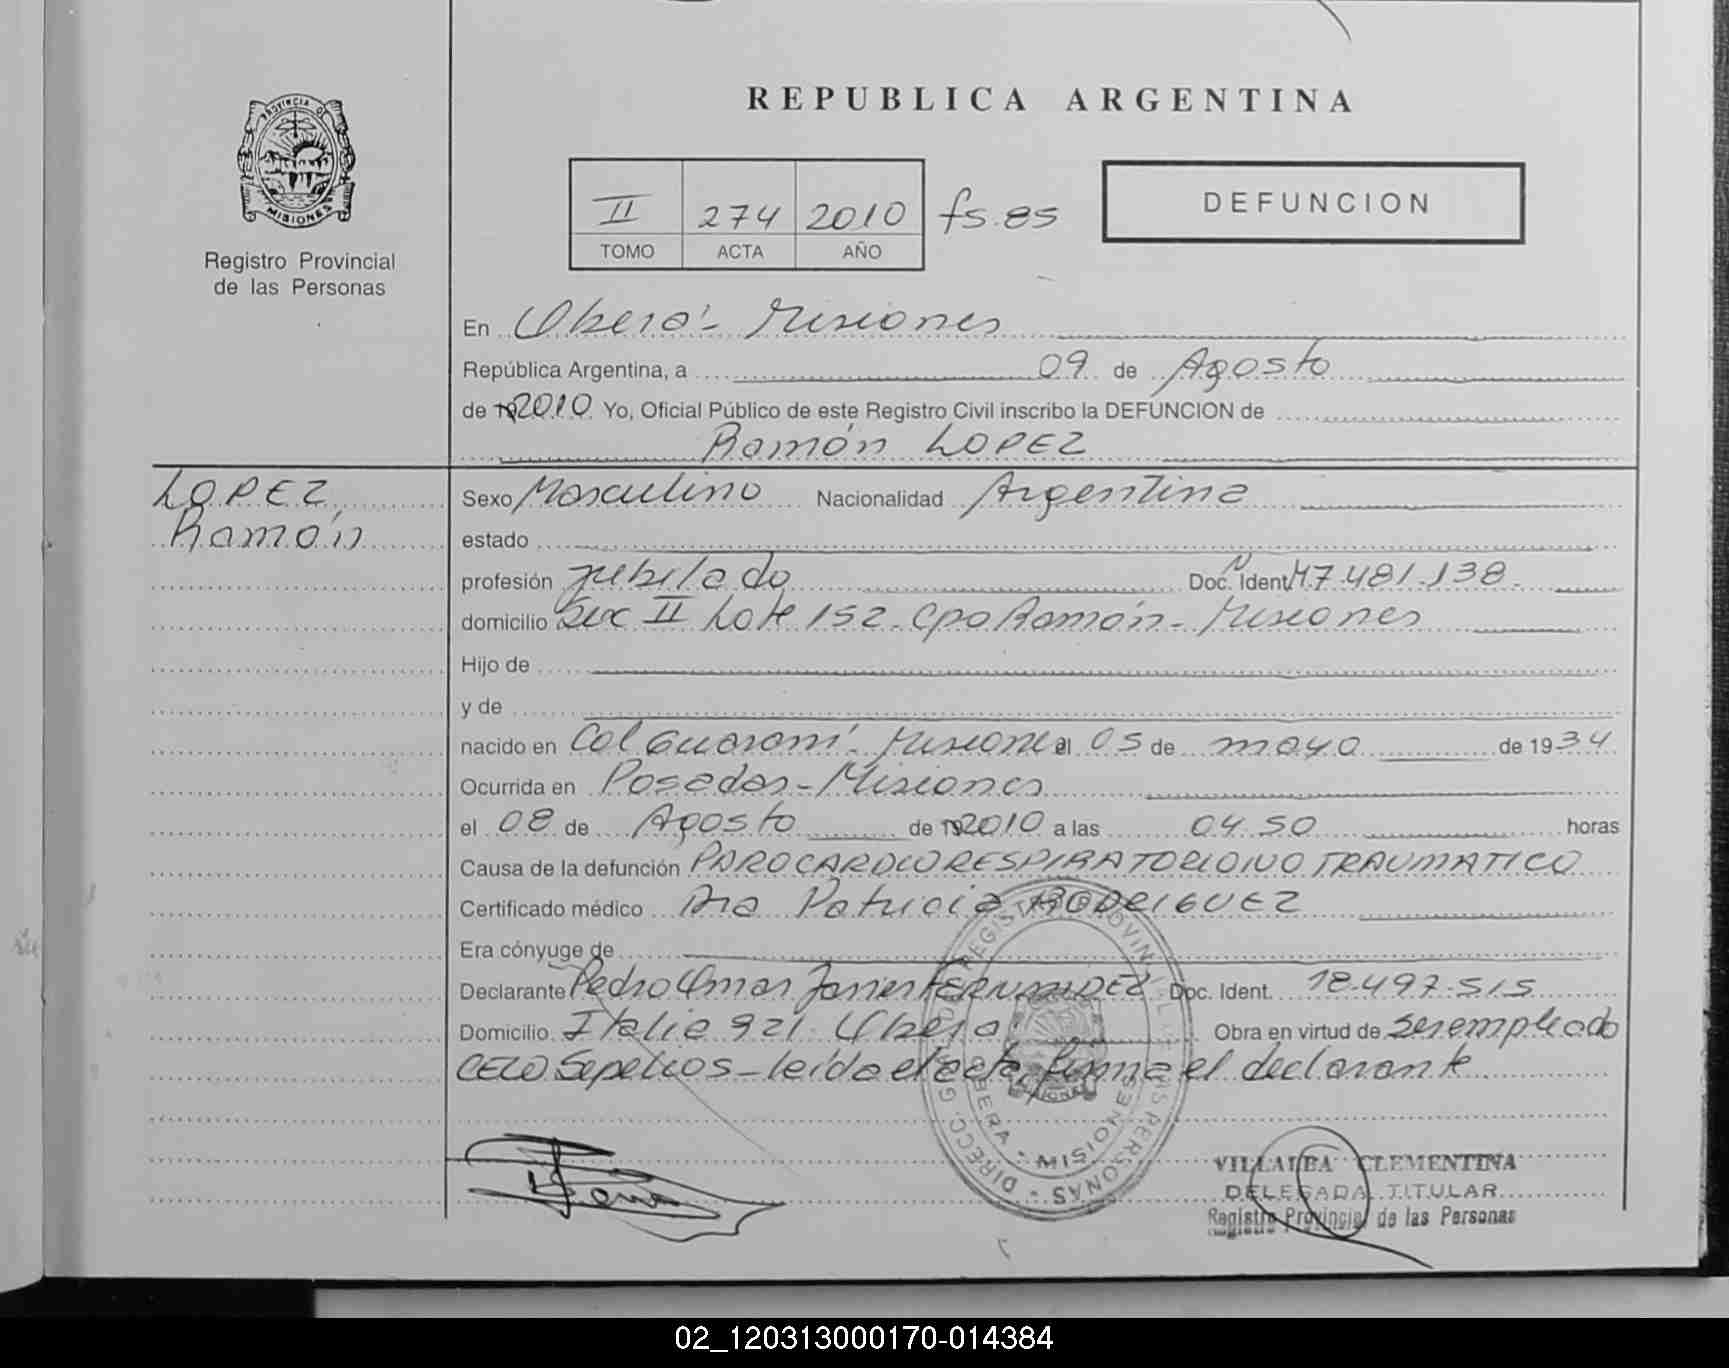 REPUBLICA ARGENTINA
PROVINCIA DE MISIONES
Registro Provincial
de las Personas
II 274 2010 fs. 85
TOMO ACTA AÑO
DEFUNCION
En Oberá - Misiones
República Argentina, a 09 de Agosto
de 2010 Yo, Oficial Público de este Registro Civil inscribo la DEFUNCION de
Ramón LOPEZ
LOPEZ
Ramón
Sexo Masculino Nacionalidad Argentina
estado
profesión jubilado Doc. Ident. M 7.481.138
domicilio Secc II Lote 152 - Cpo Ramón - Misiones
Hijo de
y de
nacido en Col Guaraní - Misiones el 05 de mayo de 1934
Ocurrida en Posadas - Misiones
el 08 de Agosto de 2010 a las 04.50 horas
Causa de la defunción PAROCARDIORESPIRATORIO NO TRAUMATICO
Certificado médico Dra Patricia RODRIGUEZ
Era cónyuge de
Declarante Pedro Omar Javier FERNANDEZ Doc. Ident. 18.497.515
Domicilio Italia 921 - Oberá Obra en virtud de ser empleado
CELO Sepelios - leída el acta, firma el declarante
DIRECC. GRAL. DE REGISTRO PROVINCIAL DE LAS PERSONAS
OBERA - MISIONES
VILLALBA CLEMENTINA
DELEGADA TITULAR
Registro Provincial de las Personas
02_120313000170-014384